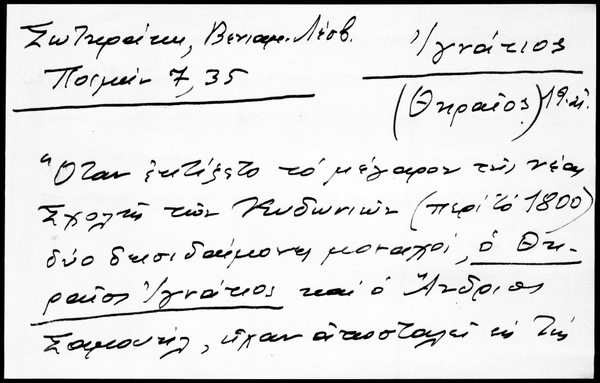 Σωτηράκη, Βενιαμ. Λέσβ.
Ποιμήν 7, 35
Ἰγνάτιος
(Θηραῖος) 19 αἰ.
"Ὅταν ἐκτίζετο τό μέγαρον τῆς νέας
Σχολῆς τῶν Κυδωνιῶν (περί τό 1800)
δύο δεισιδαίμονες μοναχοί, ὁ Θη-
ραῖος Ἰγνάτιος καί ὁ Ἄνδριος
Σαμουήλ, εἶχαν ἀποσταλεῖ ἐκ τῆς